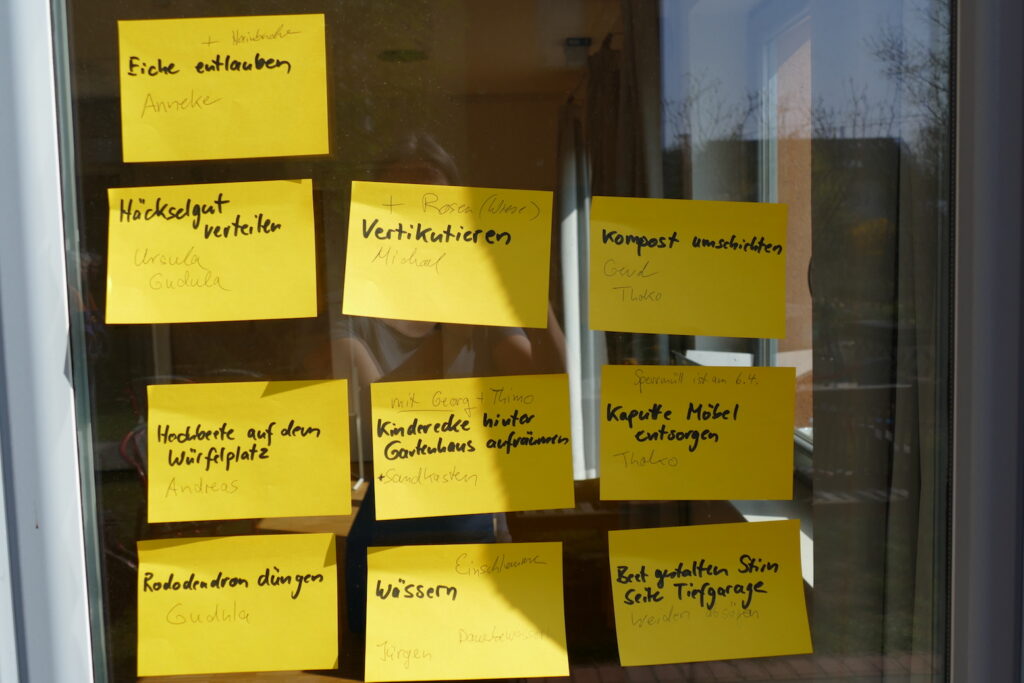 + Hainbuche
Eiche entlauben
Anneke
Häckselgut
verteilen
Ursula
Gudula
+ Rosen (Wiese)
Vertikutieren
Michael
Kompost umschichten
Gerd
Thoko
Hochbeete auf dem
Würfelplatz
Andreas
mit Georg + Thimo
Kinderecke hinter
Gartenhaus aufräumen
+ Sandkasten
Sperrmüll ist am 6.4.
Kaputte Möbel
entsorgen
Thoko
Rododendron düngen
Gudula
Wässern
Jürgen
Beet gestalten Stirn
Seite Tiefgarage